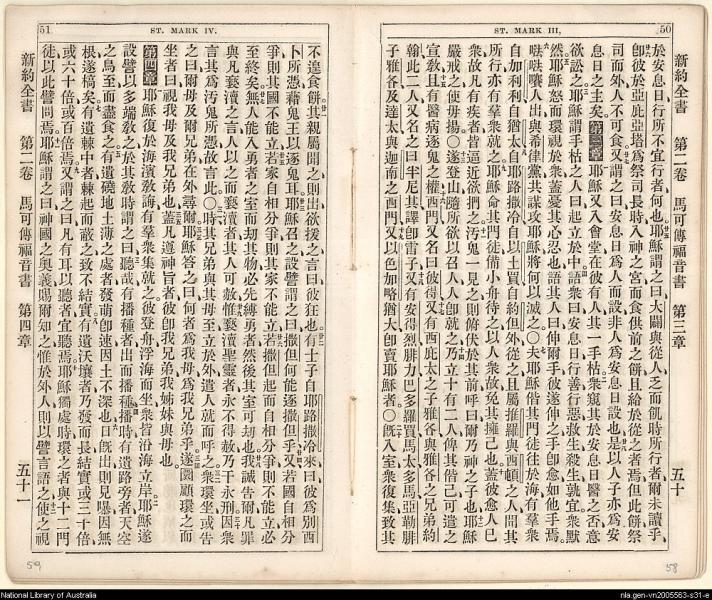 50
ST. MARK III,
新約全書 第二卷 馬可傳福音書 第三章 五十
於安息日行所不宜行者何也耶穌謂之曰大闢與從人乏而飢時所行者爾未讀乎
卽彼於亞庇亞塔爲祭司長時入神之宮而食供前之餅且給於從之者焉但此餅祭
司而外人不可食又謂之曰安息日爲人而設非人爲安息日設也是以人子亦爲安
息日之主矣第三章耶穌又入會堂在彼有人其一手枯衆窺其於安息日醫之否意
欲訟之耶穌謂手枯之人曰起立於中語衆曰安息日行善行惡救生殺生孰宜衆默
然耶穌怒而環視於衆蓋憂其心忍也語其人曰伸爾手彼遂伸之手卽愈如他手焉
㘔唎嚷人出與希律黨共謀攻耶穌將何以滅之○夫耶穌偕其門徒往於海有羣衆
自加利利自猶太自耶路撒冷自以土買自約但外從之且屬推羅與西頓之人聞其
所行亦有羣衆就之耶穌命其門徒備小舟待之以人衆故免其擁己也蓋彼愈人已
衆故凡有疾者皆逼近欲捫之汚鬼一見之則俯伏於其前呼曰爾乃神之子也耶穌
嚴戒之使毋揚○遂登山隨所欲以召人人卽就之乃立十有二人俾其偕己可遣之
宣敎且有醫病逐鬼之權西門又名曰彼得又有西庇太之子雅各與雅各之兄弟約
翰此二人又名之曰半尼其譯卽雷子又有安得烈腓力巴多羅買馬太多馬亞勒腓
子雅各及達太與迦南之西門又以色加略猶大卽賣耶穌者○旣入室衆復集致其
58
51
ST. MARK IV.
不遑食餅其親屬聞之則出欲援之言曰彼狂也有士子自耶路撒冷來曰彼爲別西
卜所憑藉鬼王以逐鬼耳耶穌召之設譬謂之曰撒但何能逐撒但乎又若國自相分
爭則其國不能立若家自相分爭則其家不能立若撒但起而自相分爭則不能立必
至終矣無人能入勇者之室而刧其物必先縛勇者然後其室可刧也我誠告爾凡罪
與凡褻瀆之言人以之而褻瀆者其人可赦惟褻瀆聖靈者永不得赦乃干永刑因衆
言其爲汚鬼所憑故言此○時其兄弟與其母至立於外遣人就而呼之衆環坐或告
之曰爾母及爾兄弟在外尋爾耶穌答之曰何者爲我母爲我兄弟乎遂圜顧環之而
坐者曰視我母及我兄弟也蓋凡遵神旨者彼卽我兄弟我姊妹與母也
第四章耶穌復於海濱敎誨有羣衆集就之彼登舟浮海而坐衆皆沿海立岸耶穌遂
設譬以多端敎之於其敎時謂之曰聽哉有播種者出而播種播時有遺路旁者天空
之鳥至而盡食之有遺磽地土薄之處者發萌卽速因土不深也日旣出則見曝因無
根遂槁矣有遺棘中者棘起而蔽之致不結實有遺沃壤者乃發而長結實或三十倍
或六十倍或百倍焉又謂之曰凡有耳以聽者宜聽焉耶穌獨處時環之者與十二門
徒以此譬問焉耶穌謂之曰神國之奧義賜爾知之惟於外人則以譬言語之使之視
新約全書 第二卷 馬可傳福音書 第四章 五十一
59
National Library of Australia
nla.gen-vn2005563-s31-e